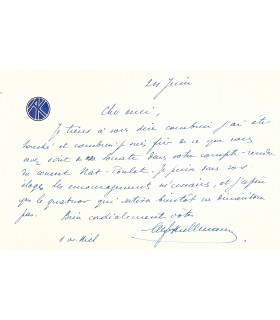 24 Juin
Cher ami,
Je tiens à vous dire combien j'ai été
touché et combien je suis fier de ce que vous
avez écrit de ma sonate dans votre compte-rendu
du concert Nat-Poulet. Je puise dans vos
éloges les encouragements nécessaires, et j'espère
que le quatuor qui suivra bientôt ne démentira
pas. Bien cordialement vôtre